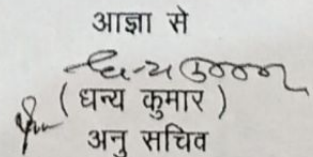 आज्ञा से
( धन्य कुमार )
अनु सचिव